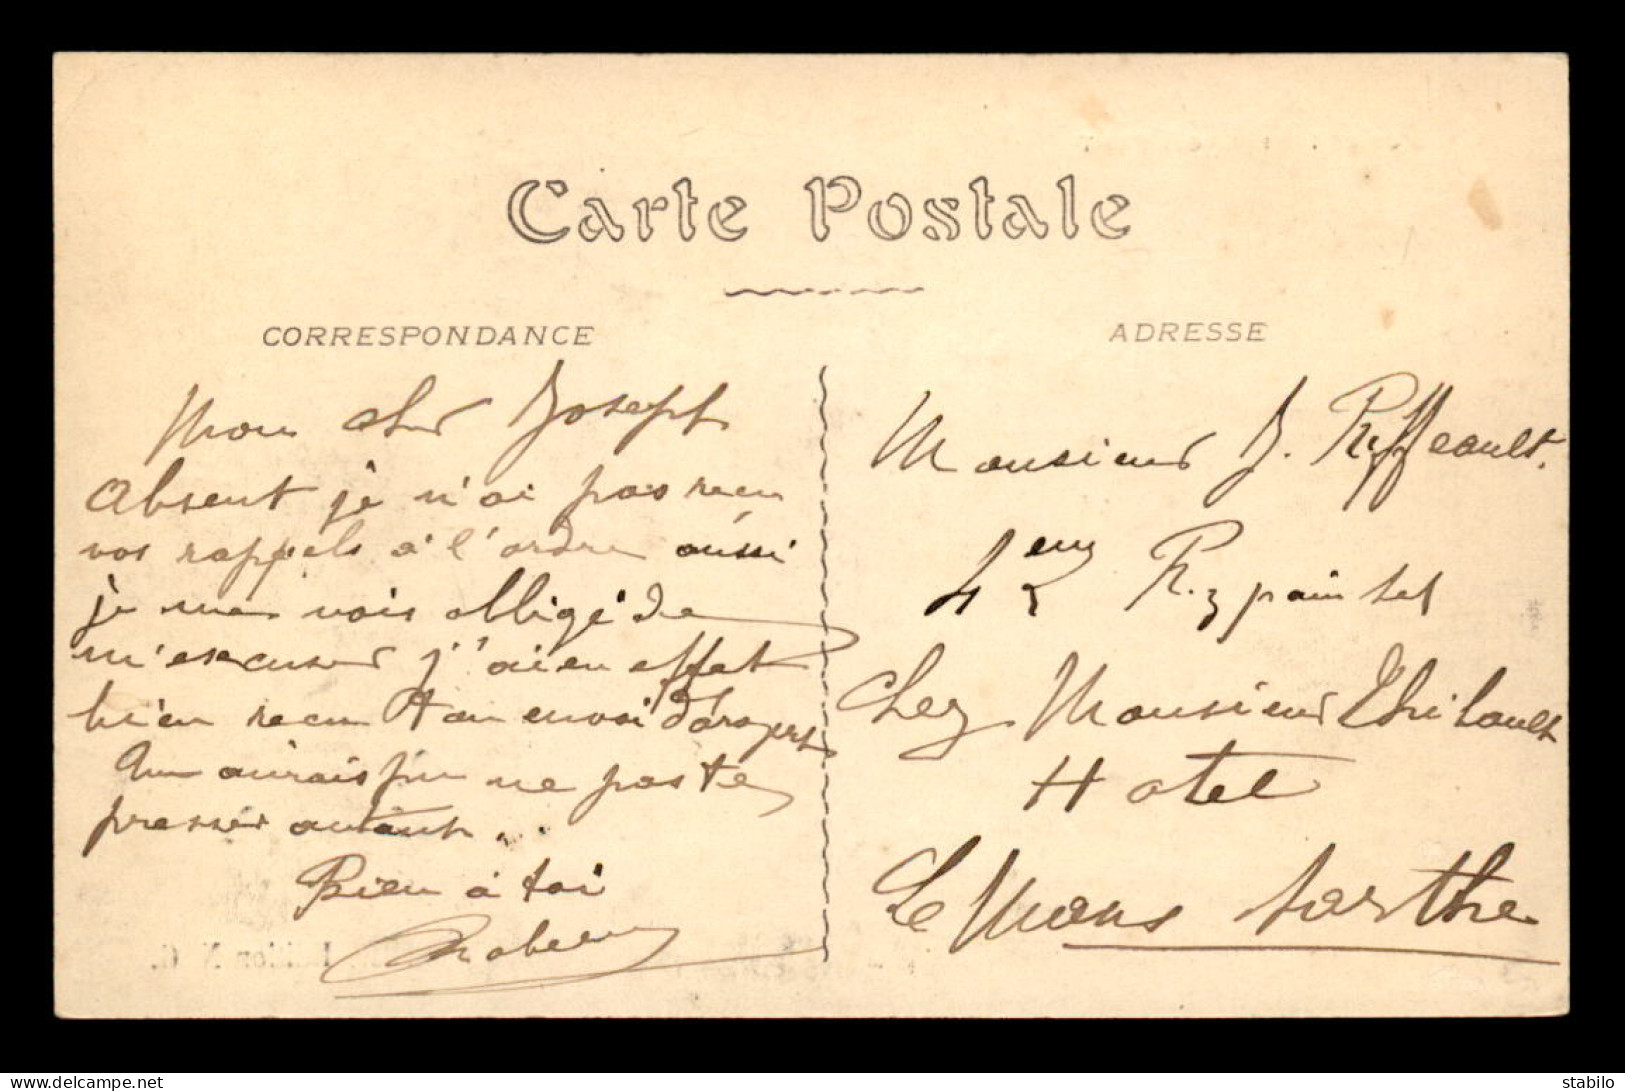 Carte Postale
CORRESPONDANCE
Mon cher Joseph
Absent je n'ai pas recu
vos rappels à l'ordre aussi
je me vois obligé de
m'escuser j'ai en effet
bien recu ton envoi
aurais pu ne pas te
presser autant.
Bien à toi
ADRESSE
Monsieur J. Riffeault.
4 R.
chez Monsieur Thibault
Hotel
Le Mans Sarthe
delcampe.net
stabilo